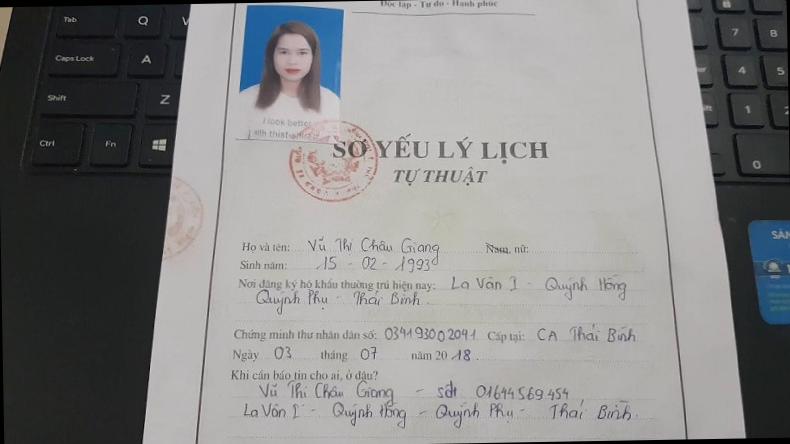 Độc lập - Tự do - Hạnh phúc
I look better
SƠ YẾU LÝ LỊCH
TỰ THUẬT
Họ và tên: Vũ Thị Châu Giang Nam, nữ:
Sinh năm: 15 - 02 - 1993
Nơi đăng ký hộ khẩu thường trú hiện nay: La Vân I - Quỳnh Hồng
Quỳnh Phụ - Thái Bình
Chứng minh thư nhân dân số: 034193002091 Cấp tại: CA Thái Bình
Ngày 03 tháng 07 năm 2018.
Khi cần báo tin cho ai, ở đâu?
Vũ Thị Châu Giang - sđt 01644569454
La Vân I - Quỳnh Hồng - Quỳnh Phụ - Thái Bình.
Tab Q
Caps Lock A
Shift Z
Ctrl Fn
7 8
4 5
1 2
0